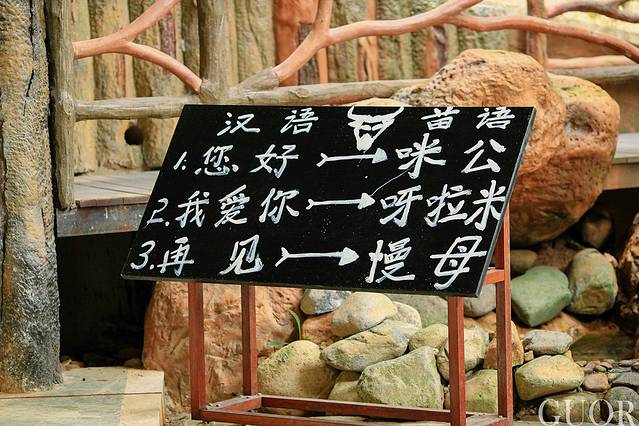 汉语 苗语
1.您好→咪公
2.我爱你→呀拉米
3.再见→慢母
GUOR